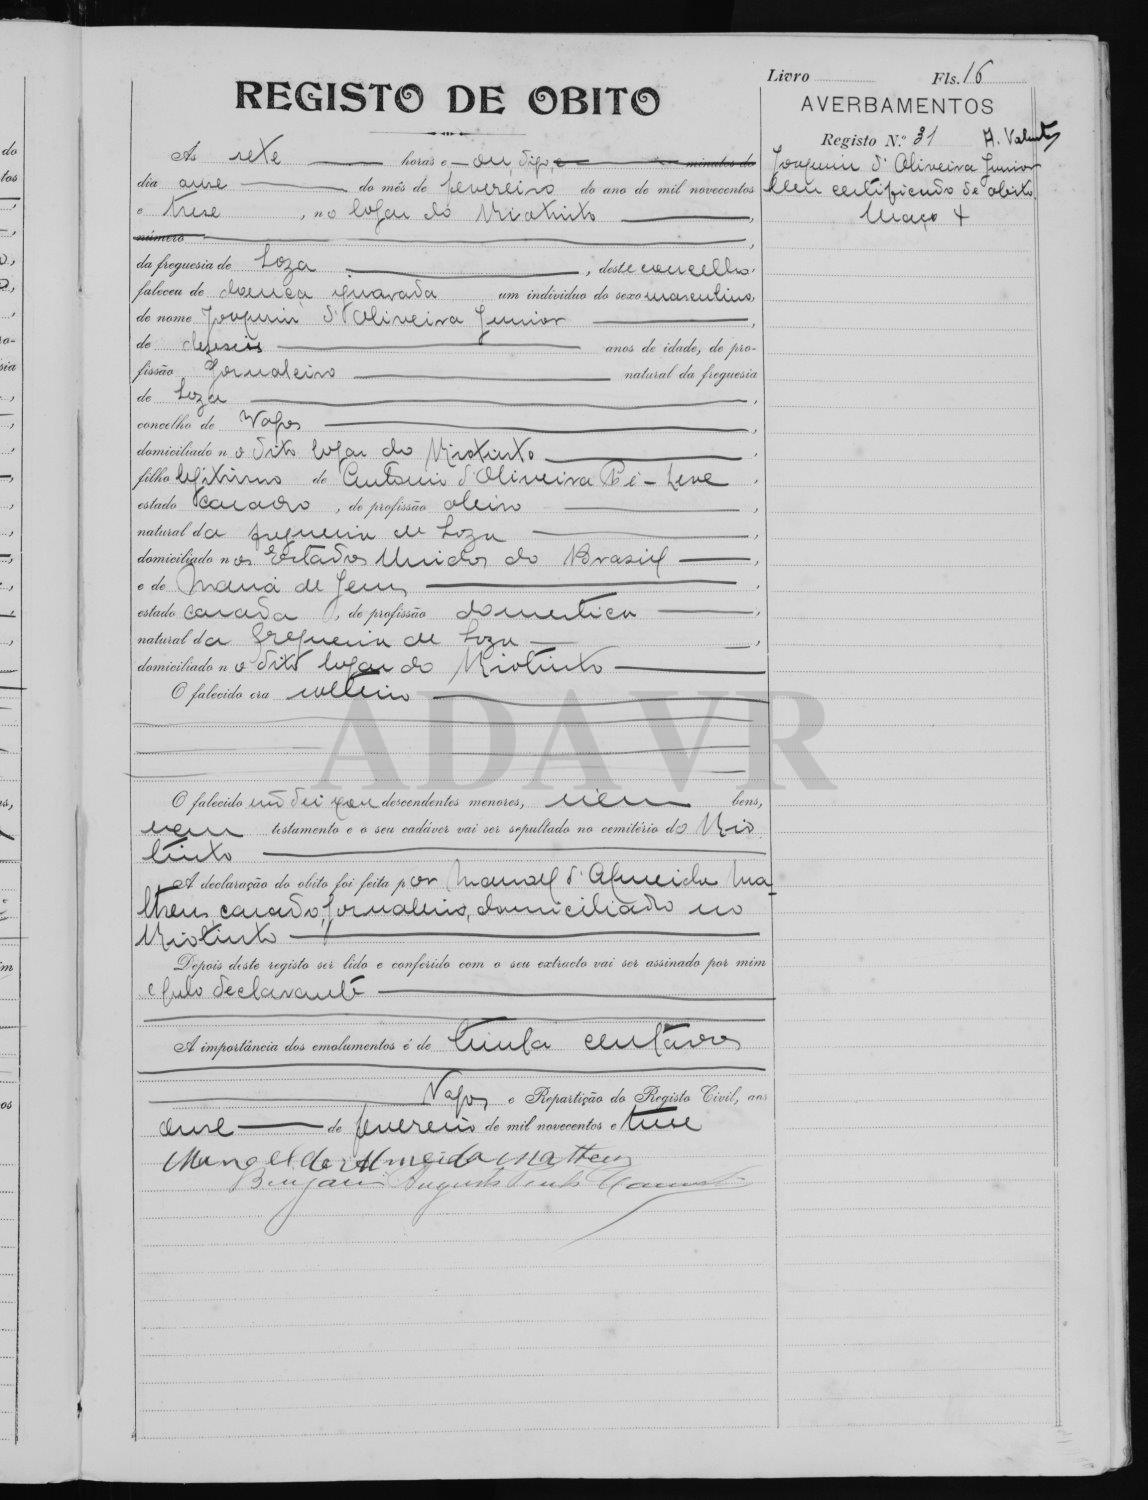 Livro Fls. 16
REGISTO DE OBITO
AVERBAMENTOS
Registo N.º 31
Joaquim d'Oliveira Junior
certificado de obito.
Março 4
As sete horas e on, digo, e minutos do
dia onse do mês de fevereiro do ano de mil novecentos
e trese, no logar do Riotinto,
número,
da freguesia de Soza, deste concelho,
faleceu de doença ignorada um individuo do sexo masculino,
de nome Joaquim d'Oliveira Junior,
de deseseis anos de idade, de pro-
fissão Jornaleiro natural da freguesia
de Soza,
concelho de Vagos,
domiciliado no dito logar do Riotinto,
filho legitimo de Antonio d'Oliveira Pé-Leve,
estado casado, de profissão oleiro,
natural da freguesia de Soza,
domiciliado nos Estados Unidos do Brasil,
e de Maria de Jesus,
estado casada, de profissão domestica,
natural da freguesia de Soza,
domiciliado no dito logar do Riotinto
O falecido era solteiro
ADAVR
O falecido não deixou descendentes menores, nem bens,
nem testamento e o seu cadáver vai ser sepultado no cemitério do Rio
tinto
A declaração do obito foi feita por Manoel d'Almeida Ma-
theus, casado, jornaleiro, domiciliado no
Riotinto
Depois deste registo ser lido e conferido com o seu extracto vai ser assinado por mim
e pelo declarante
A importância dos emolumentos é de trinta centavos
Vagos e Repartição do Registo Civil, aos
onse de fevereiro de mil novecentos e trese
Manoel de Almeida Matheus
Benjamim Augusto